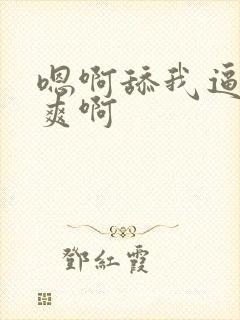 嗯啊舔我逼
爽啊
鄧紅霞